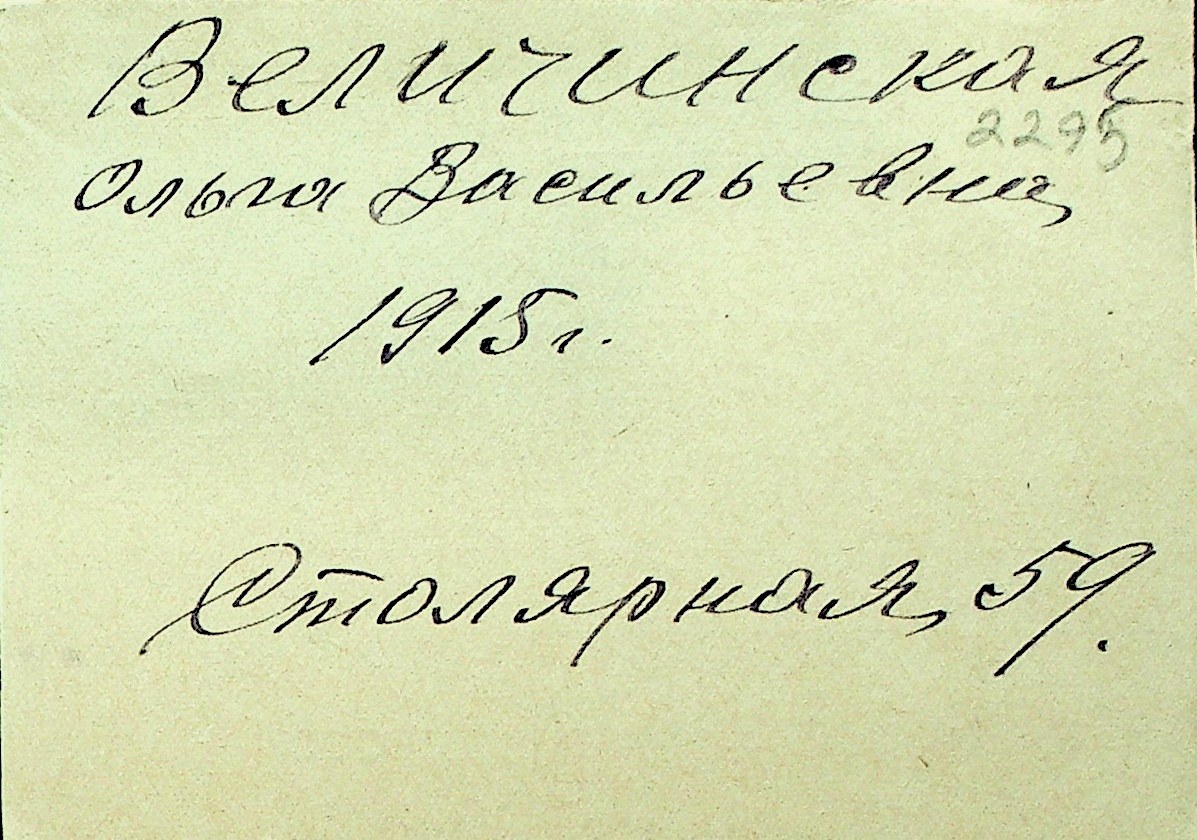 Величинская
2295
Ольга Васильевна
1915г.
Столярная, 59.